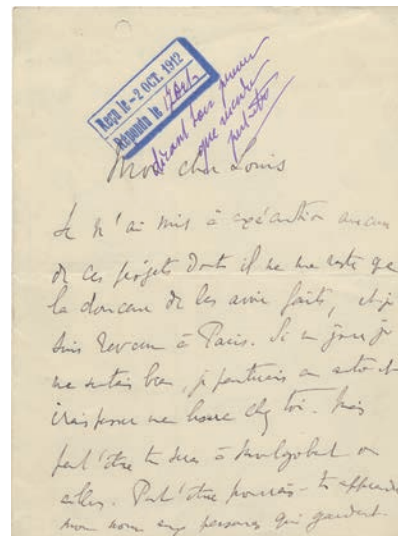 Reçu le - 2 OCT. 1912
Répondu le
Mon cher Louis
Je n'ai mis à exécution aucun
de ces projets dont il ne me reste que
la douceur de les avoir faits, et je
suis revenu à Paris. Si un jour je
me sentais bien, je partirais en auto et
irais passer une heure chez toi. Mais
peut'être tu seras à ou
ailleurs. Peut'être pourrais-tu apprendre
mon nom aux personnes qui gardent